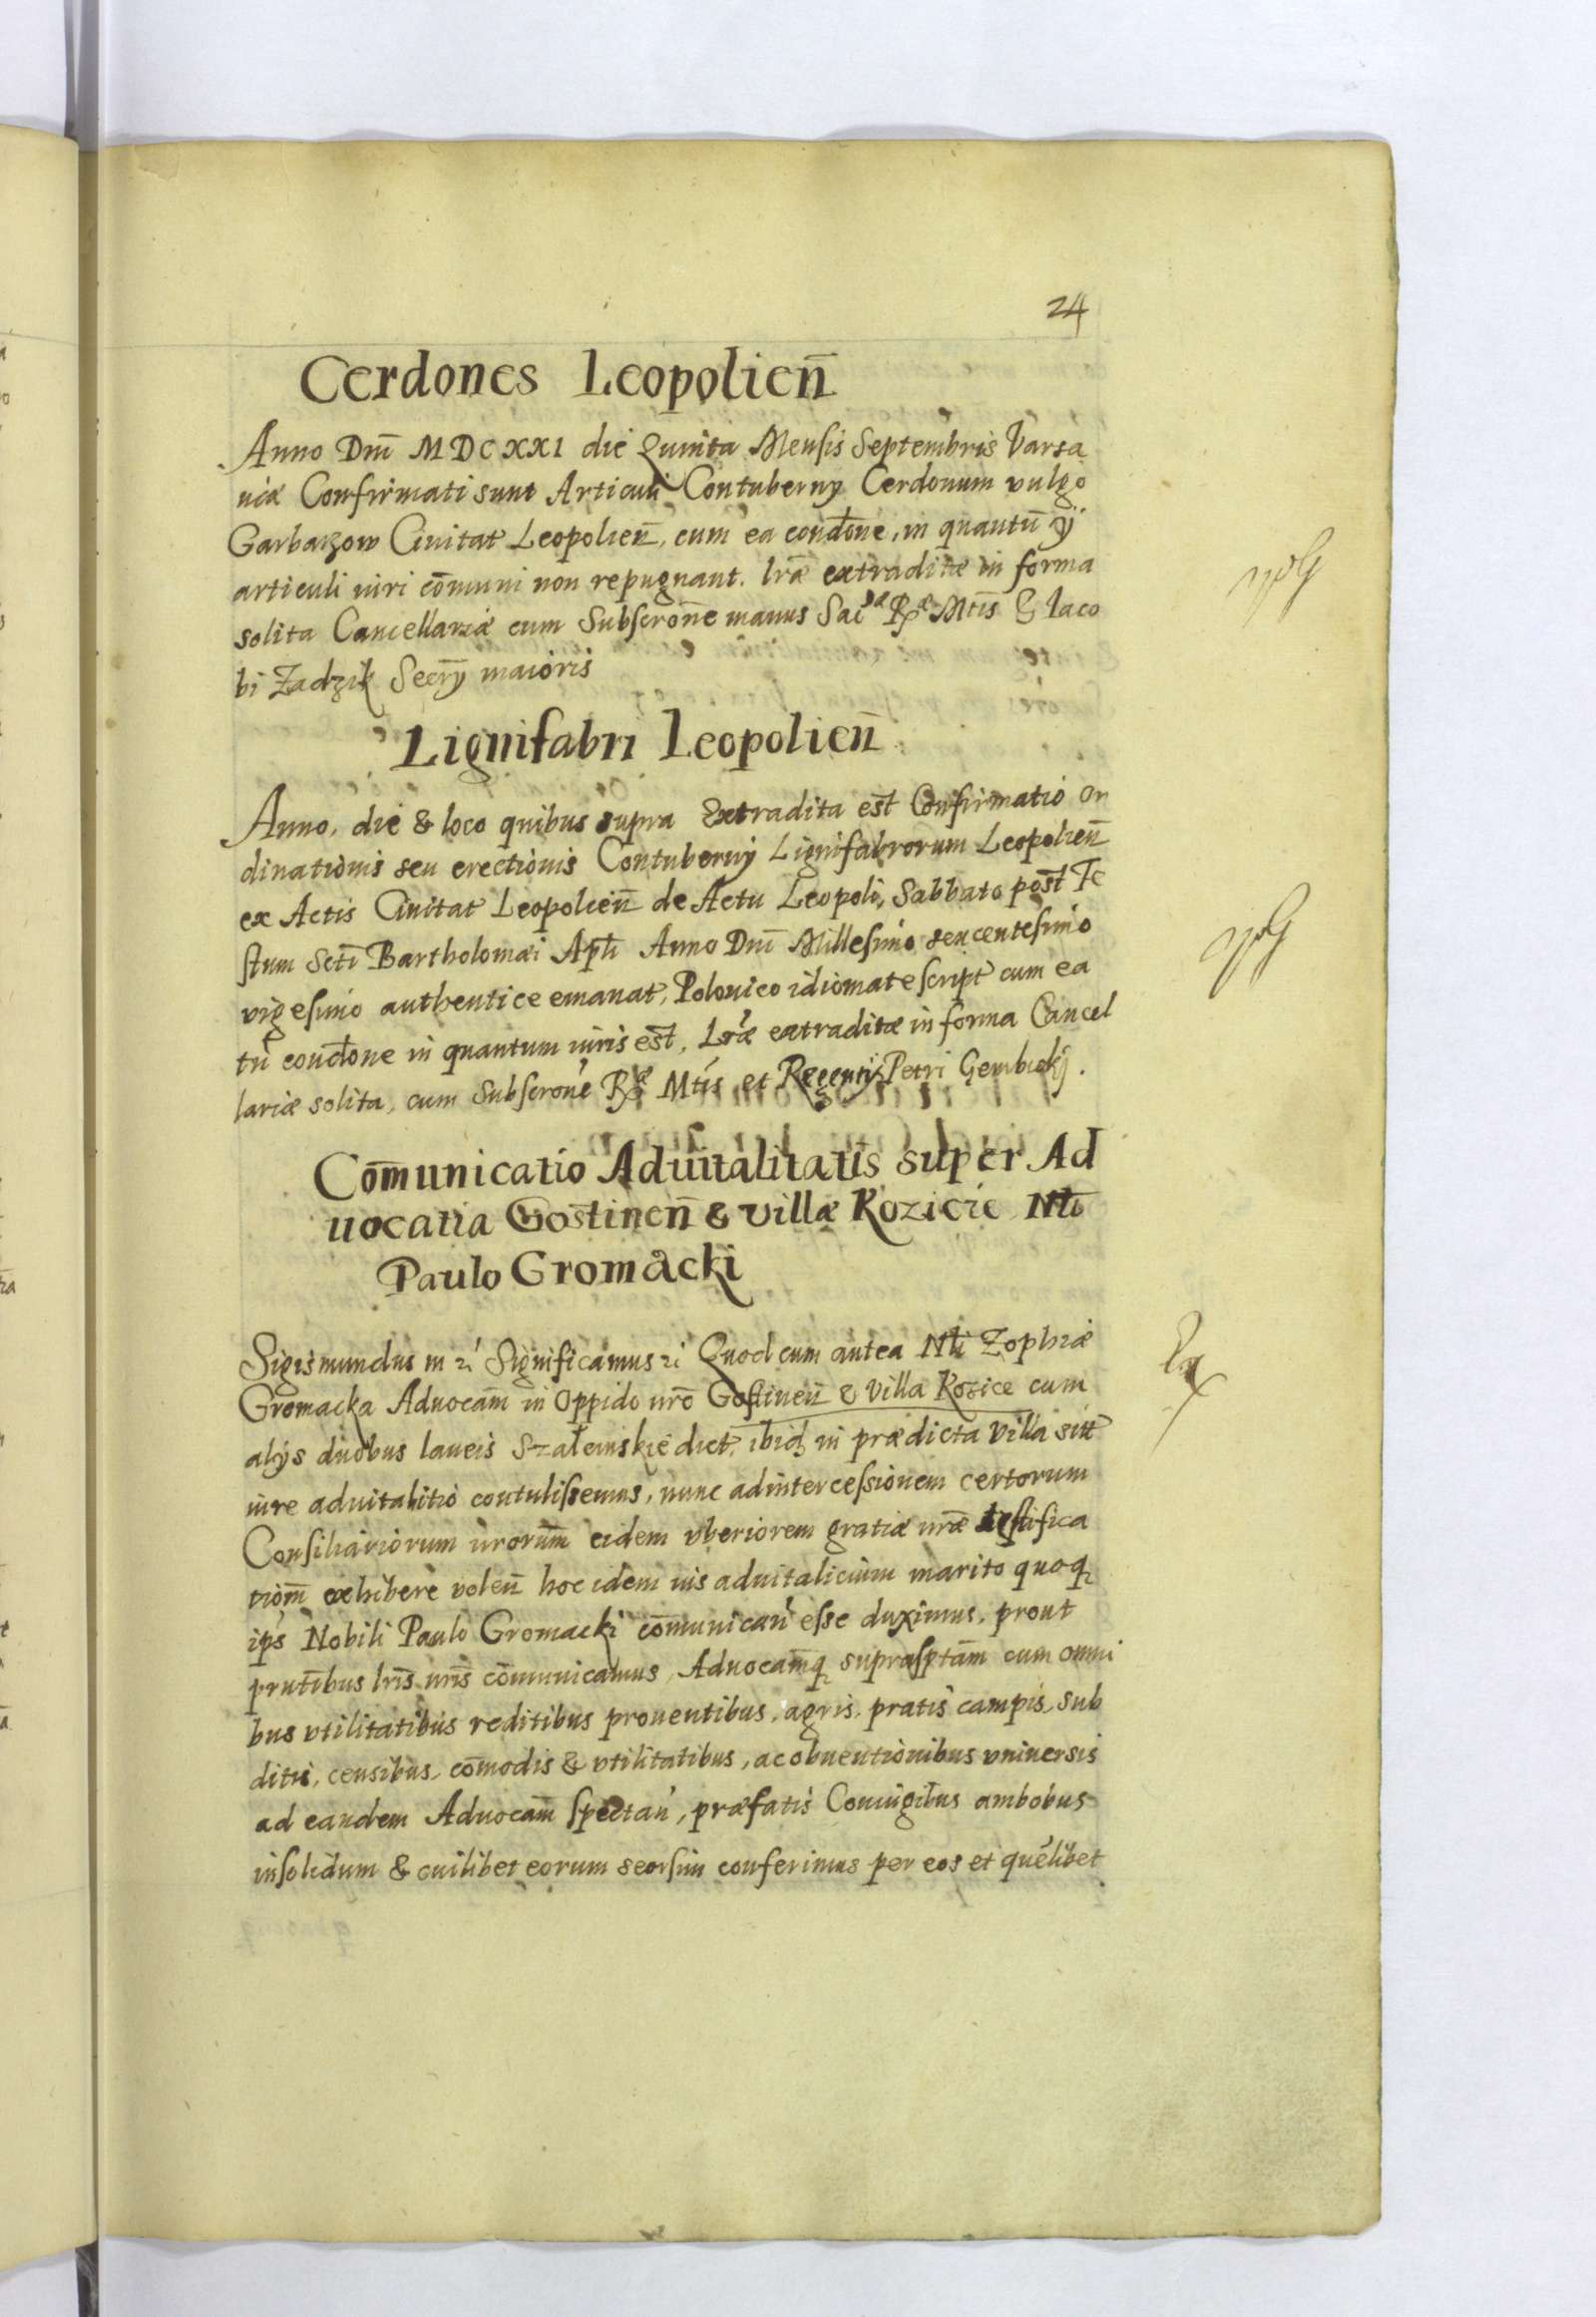 24
Cerdones Leopolien̄
Anno Dni̅ MDCXXI die Quinta Mensis Septembris Varsa
uiæ Confirmati sunt Articuli Contubernÿ Cerdonum vulgo
Garbarzow Ciuitat Leopolien̄, cum ea condo̅ne, in quantu̅ ÿ
articuli iuri co̅muni non repugnant. Lræ̅ extraditæ in forma
solita Cancellariæ cum Subscron̅e manus Sac Ræ Mtis̅ & Iaco
bi Zadzik Secrÿ maioris
Lignifabri Leopolien̄
Anno, die & loco quibus supra Extradita est Confirmatio Or
dinationis seu erectionis Contubernÿ Lignifabrorum Leopolien̄
ex Actis Ciuitat Leopolien̄ de Actu Leopoli, Sabbato post Fe
stum Scti̅ Bartholomæi Apli̅ Anno Dni̅ Millesimo sexcentesimo
vigesimo authentice emanat, Polonico idiomate script cum ea
tn̅ condo̅ne in quantum iuris est. Lræ̅ extraditæ in forma Cancel
lariæ solita, cum Subscrone̅ Ræ Mtis̅ et Regentis Petri Gembickj.
Co̅municatio Aduitalitatis super Ad
uocatia Gostinen̄ & villæ Kozicie Nli̅
Paulo Gromacki
Sigismundus III etc Significamus etc Quod cum antea Nli̅ Zophiæ
Gromacka Aduocam̅ in Oppido nro̅ Gostinen̄ & Villa Kozice cum
alÿs duobus laneis Szałemskie dict, ibidq̃ in prædicta Villa sitt
iure aduitalitio contulissemus, nunc ad intercessionem certorum
Consiliariorum nrorum̅ eidem vberiorem gratiæ nræ̅ testifica
tiom̅ exhibere volen̄ hoc idem ius aduitalicium marito quoq̃
ips̅ Nobili Paulo Gromacki co̅munican̅ esse duximus, prout
prntibus̅ lris̅ nris̅ co̅municamus, Aduocam̅q̃ suprasptam̅ cum omni
bus vtilitatibus reditibus prouentibus, agris, pratis campis, sub
ditis, censibus, co̅modis & vtilitatibus, ac obuentionibus vniuersis
ad eandem Aduocam̅ spectan̅, præfatis Coniugibus ambobus
insolidum & cuilibet eorum seorsim conferimus per eos et quēlibet